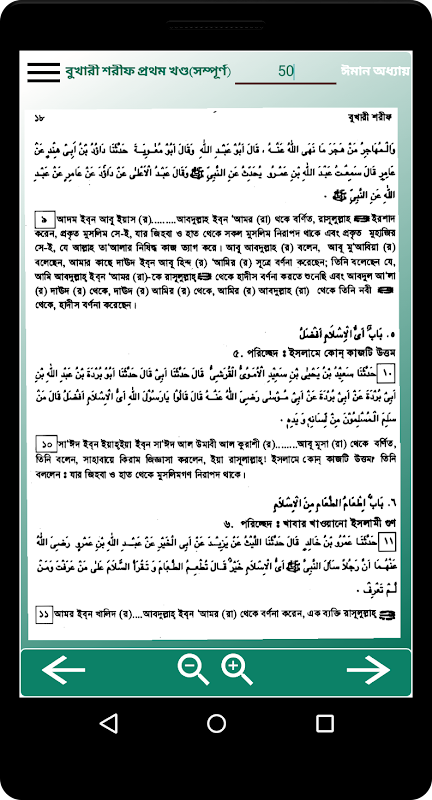 বুখারী শরীফ প্রথম খণ্ড(সম্পূর্ণ) 50 ঈমান অধ্যায়
১৮ বুখারী শরীফ
وَالْمُهَاجِرُ مَنْ هَجَرَ مَا نَهَى اللّٰهُ عَنْهُ ، قَالَ أَبُوْ عَبْدِ اللّٰهِ وَقَالَ أَبُوْ مُعَاوِيَةَ حَدَّثَنَا دَاوُدُ بْنُ أَبِيْ هِنْدٍ عَنْ
عَامِرٍ قَالَ سَمِعْتُ عَبْدَ اللّٰهِ بْنَ عَمْرٍو يُحَدِّثُ عَنِ النَّبِيِّ ﷺ وَقَالَ عَبْدُ الْأَعْلٰى عَنْ دَاوُدَ عَنْ عَامِرٍ عَنْ عَبْدِ
اللّٰهِ عَنِ النَّبِيِّ ﷺ .
৯ আদম ইব্‌ন আবূ ইয়াস (র).........আবদুল্লাহ্ ইব্‌ন 'আমর (রা) থেকে বর্ণিত, রাসূলুল্লাহ্ ﷺ ইরশাদ
করেন, প্রকৃত মুসলিম সে-ই, যার জিহবা ও হাত থেকে সকল মুসলিম নিরাপদ থাকে এবং প্রকৃত মুহাজির
সে-ই, যে আল্লাহ্ তা'আলার নিষিদ্ধ কাজ ত্যাগ করে। আবূ আবদুল্লাহ্ (র) বলেন, আবূ মু'আবিয়া (র)
বলেছেন, আমার কাছে দাউদ ইব্‌ন আবূ হিন্দ (র) 'আমির (র) সূত্রে বর্ণনা করেছেন; তিনি বলেছেন যে,
আমি আবদুল্লাহ্ ইব্‌ন 'আমর (রা)-কে রাসূলুল্লাহ্ ﷺ থেকে হাদীস বর্ণনা করতে শুনেছি এবং আবদুল আ'লা
(র) দাউদ (র) থেকে, দাউদ (র) আমির (র) থেকে, আমির (র) আবদুল্লাহ্ (রা) থেকে তিনি নবী ﷺ
থেকে, হাদীস বর্ণনা করেছেন।
٥. بَابٌ أَيُّ الْإِسْلَامِ أَفْضَلُ
৫. পরিচ্ছেদ : ইসলামে কোন্ কাজটি উত্তম
١٠ حَدَّثَنَا سَعِيْدُ بْنُ يَحْيٰى بْنِ سَعِيْدٍ الْأُمَوِيُّ الْقُرَشِيُّ قَالَ حَدَّثَنَا أَبِيْ قَالَ حَدَّثَنَا أَبُوْ بُرْدَةَ بْنُ عَبْدِ اللّٰهِ بْنِ
أَبِيْ بُرْدَةَ عَنْ أَبِيْ بُرْدَةَ عَنْ أَبِيْ مُوْسٰى رَضِيَ اللّٰهُ عَنْهُ قَالَ قَالُوْا يَا رَسُوْلَ اللّٰهِ أَيُّ الْإِسْلَامِ أَفْضَلُ قَالَ مَنْ
سَلِمَ الْمُسْلِمُوْنَ مِنْ لِسَانِهِ وَيَدِهِ .
১০ সা'ঈদ ইব্‌ন ইয়াহ্ইয়া ইব্‌ন সা'ঈদ আল উমাবী আল কুরাশী (র)........আবূ মূসা (রা) থেকে বর্ণিত,
তিনি বলেন, সাহাবায়ে কিরাম জিজ্ঞাসা করলেন, ইয়া রাসূলাল্লাহ্! ইসলামে কোন্ কাজটি উত্তম? তিনি
বললেন : যার জিহবা ও হাত থেকে মুসলিমগণ নিরাপদ থাকে।
٦. بَابُ إِطْعَامُ الطَّعَامِ مِنَ الْإِسْلَامِ
৬. পরিচ্ছেদ : খাবার খাওয়ানো ইসলামী গুণ
١١ حَدَّثَنَا عَمْرُو بْنُ خَالِدٍ قَالَ حَدَّثَنَا اللَّيْثُ عَنْ يَزِيْدَ عَنْ أَبِي الْخَيْرِ عَنْ عَبْدِ اللّٰهِ بْنِ عَمْرٍو رَضِيَ اللّٰهُ
عَنْهُمَا أَنَّ رَجُلًا سَأَلَ النَّبِيَّ ﷺ أَيُّ الْإِسْلَامِ خَيْرٌ قَالَ تُطْعِمُ الطَّعَامَ وَتَقْرَأُ السَّلَامَ عَلٰى مَنْ عَرَفْتَ وَمَنْ
لَمْ تَعْرِفْ .
১১ আমর ইব্‌ন খালিদ (র)....আবদুল্লাহ্ ইব্‌ন 'আমর (রা) থেকে বর্ণনা করেন, এক ব্যক্তি রাসূলুল্লাহ্ ﷺ